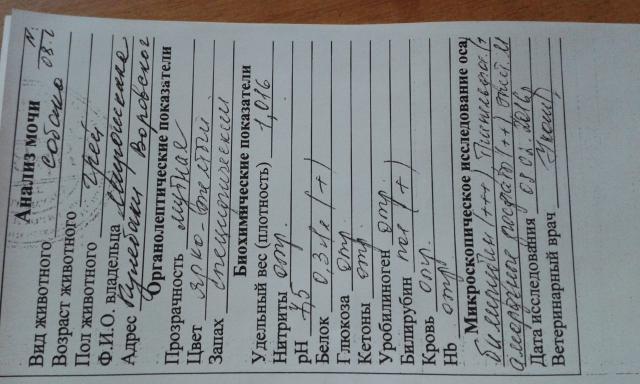 Анализ мочи
Вид животного собака
Возраст животного
Пол животного
Ф.И.О. владельца Мирошкина
Адрес Воровског
Органолептические показатели
Прозрачность мутная
Цвет ярко-желтый
Запах специфический
Биохимические показатели
Удельный вес (плотность) 1,016
Нитриты отр.
pH 7,5
Белок 0,3 г/л (+)
Глюкоза отр
Кетоны отр.
Уробилиноген отр.
Билирубин пол (+)
Кровь отр.
Hb отр
Микроскопическое исследование оса
билирубин (+++)
аморфные (++)
Дата исследования 08.02.2016г
Ветеринарный врач